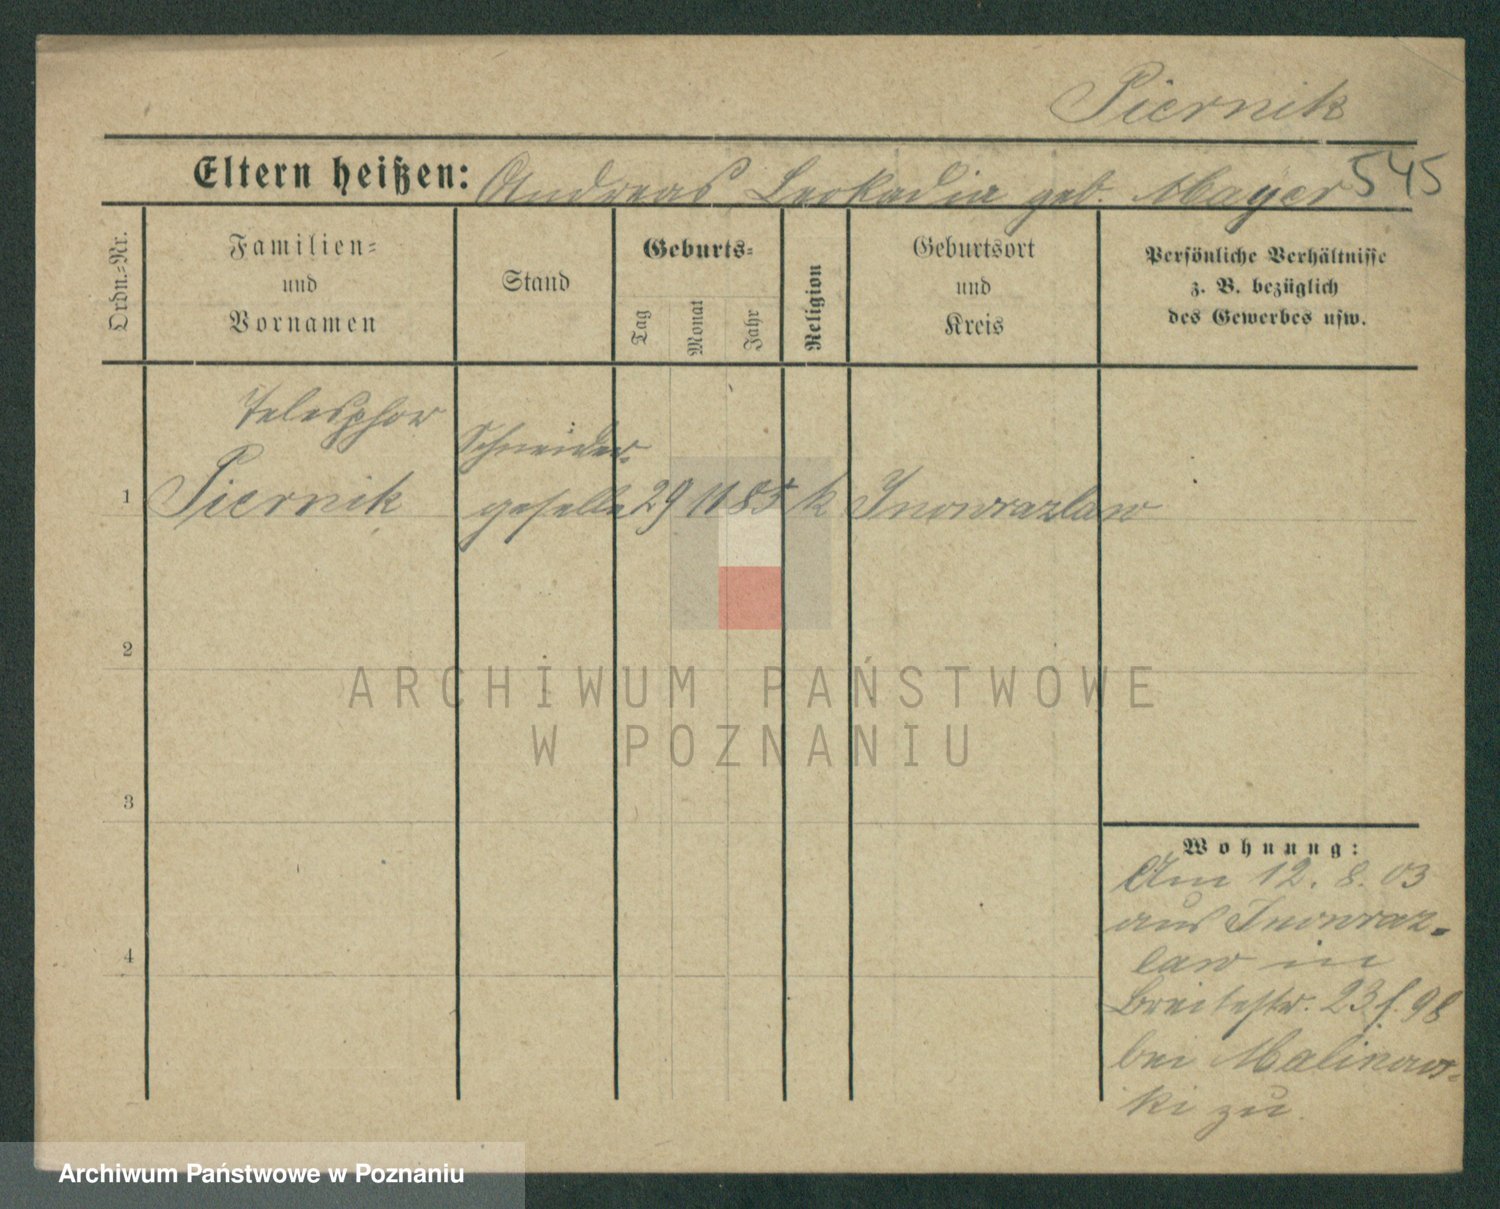 Piernik
545
Eltern heißen: Andreas Leokadia geb. Mayer
Ordn.=Nr.
Familien=
und
Vornamen
Stand
Geburts=
Tag
Monat
Jahr
Religion
Geburtsort
und
Kreis
Persönliche Verhältnisse
z. B. bezüglich
des Gewerbes usw.
Telesphor
Schneider-
1 Piernik geselle 29 11 85 k Inowrazlaw
2
3
4
ARCHIWUM PAŃSTWOWE
W POZNANIU
Wohnung:
Am 12. 8. 03
aus Inowraz-
law in
Breitestr. 23 f. 98
bei Malinows-
ki zu.
Archiwum Państwowe w Poznaniu